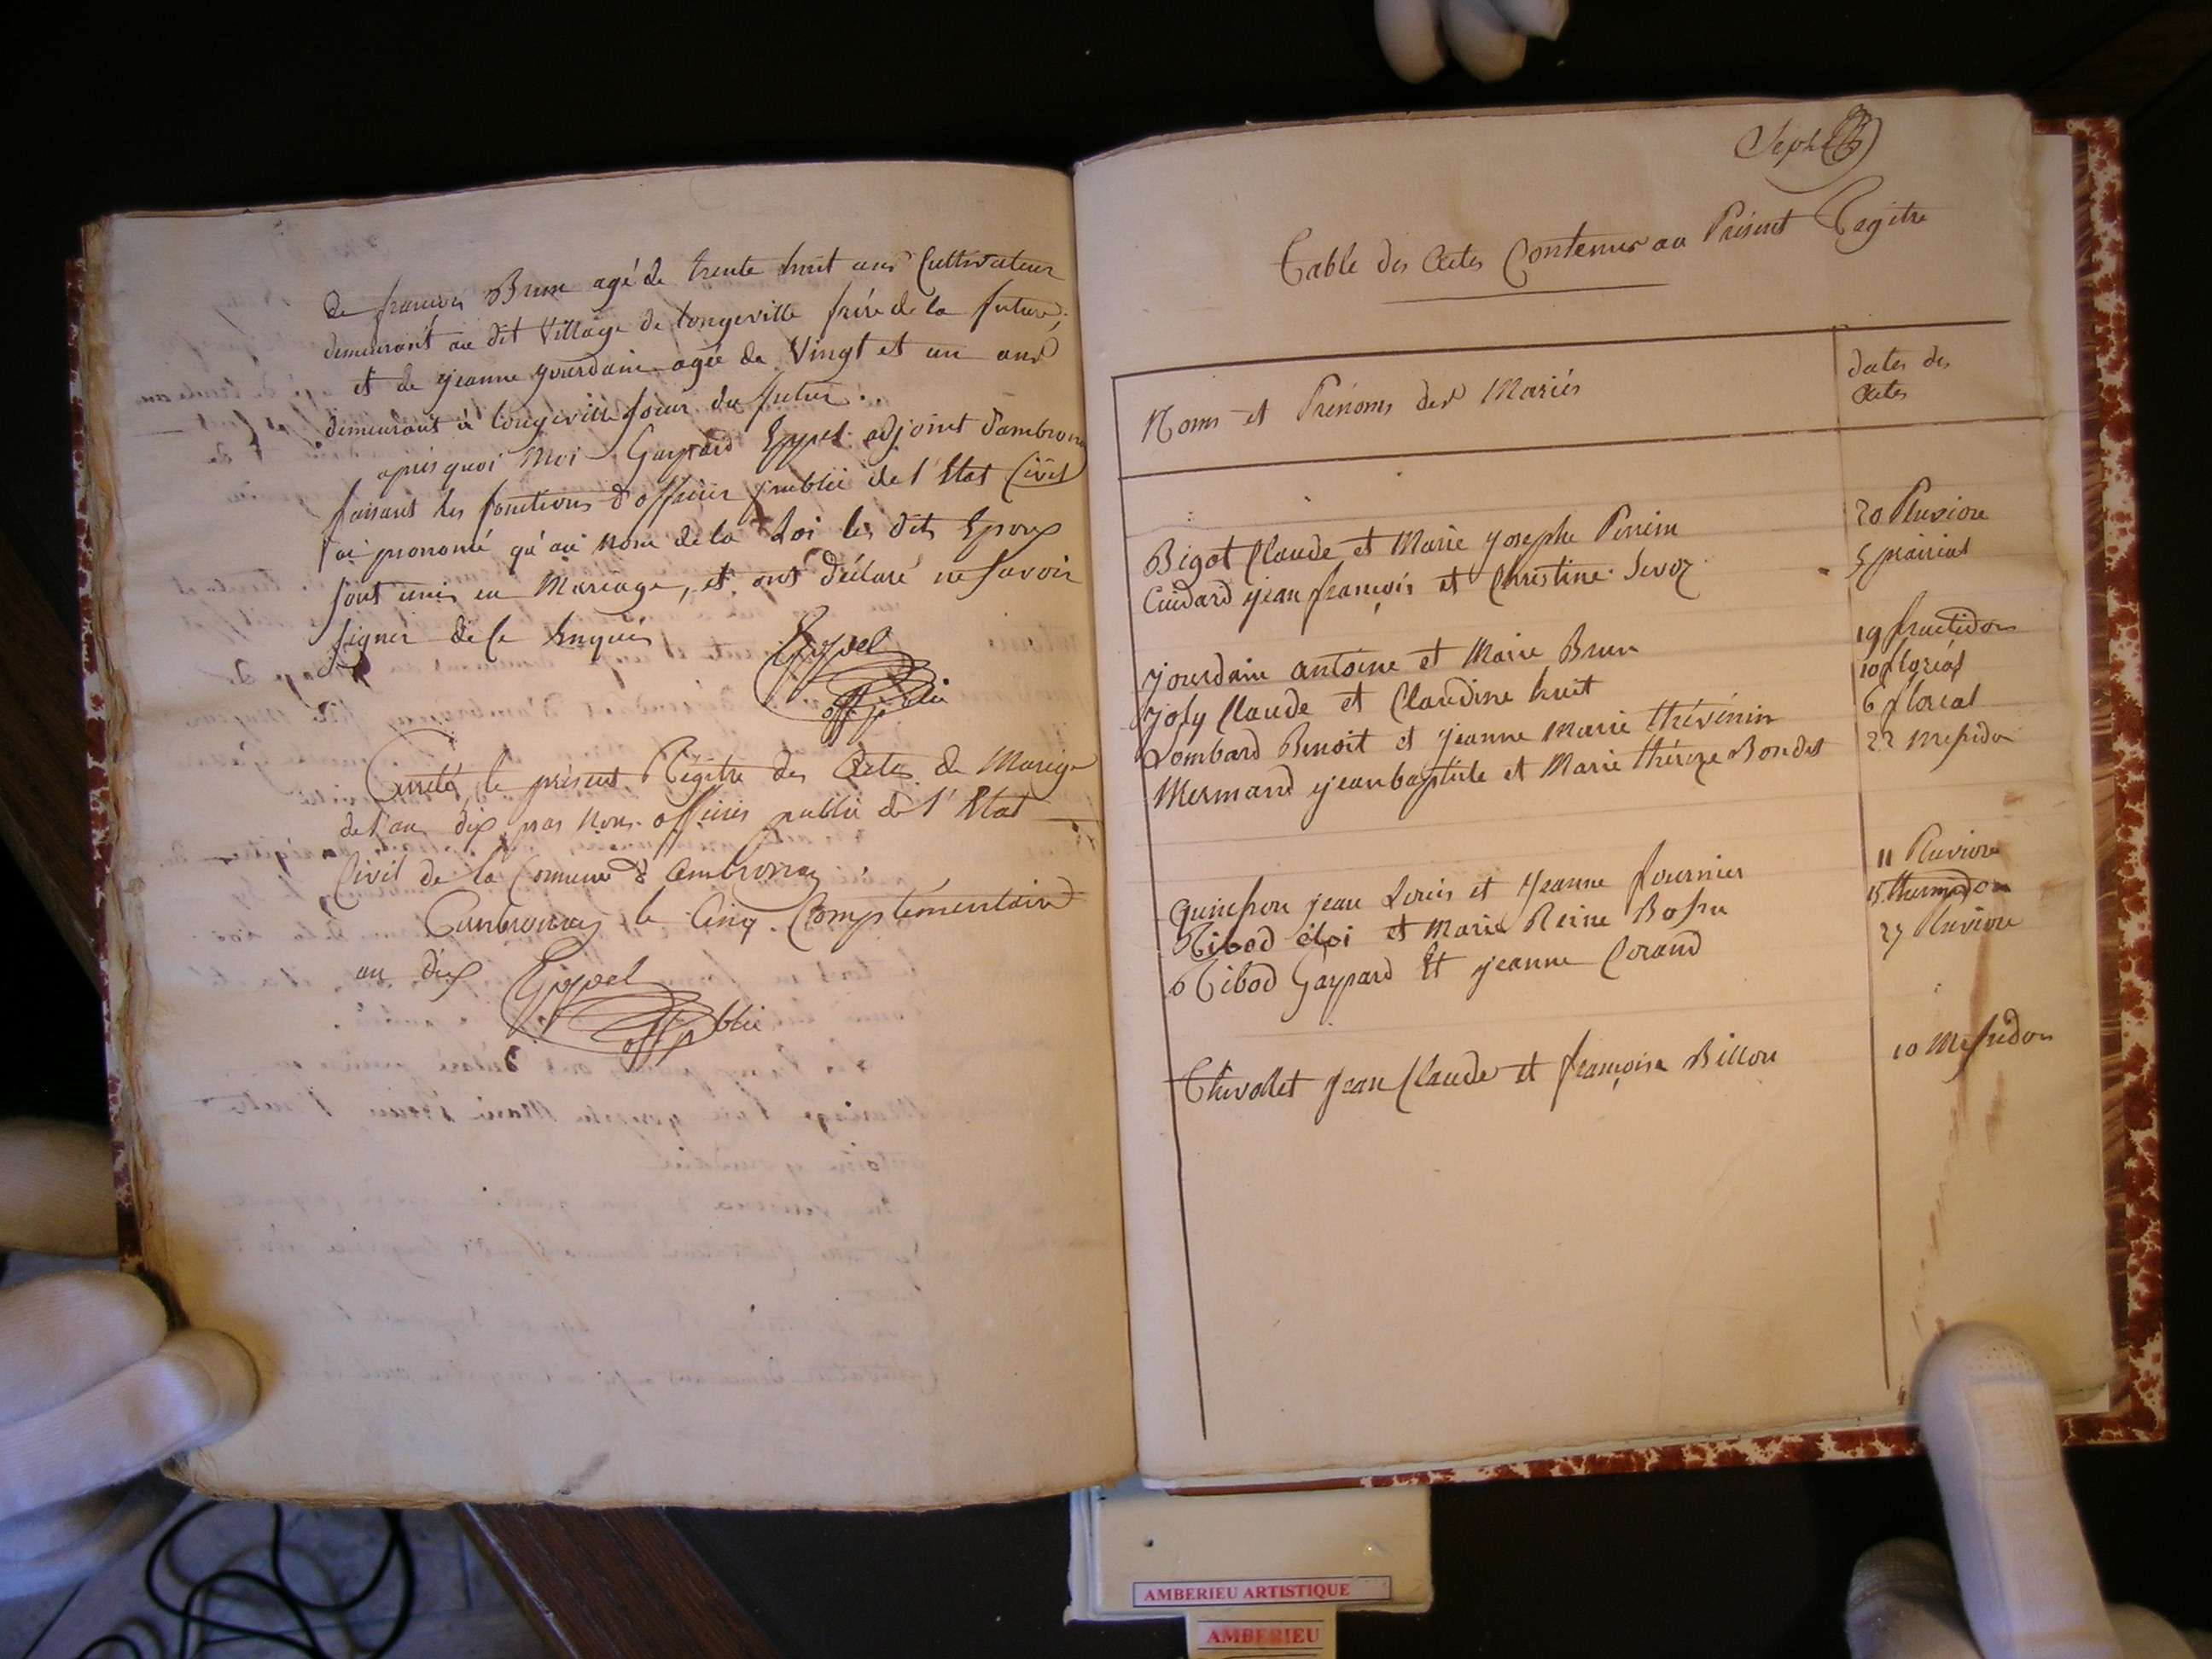 de françois Brun agé de trente huit ans Cultivateur
demeurant au dit Village de longeville frère de la future,
et de jeanne jourdain agée de Vingt et un ans
demeurant à longeville soeur du futur.
après quoi Moi Gaspard Eppel adjoint d'ambronay
faisant les fonctions d'officier public de l'Etat Civil
j'ai prononcé qu'au Nom de la Loi les dits Epoux
sont unis en Mariage, et ont déclaré ne savoir
signer de ce Enquis
Eppel
off. p. blic
Arrêté le présent Régitre des Actes de Mariage
de l'an dix par Nous officier public de l'Etat
Civil de la Commune d'ambronay
Ambronay le Cinq Complémentaire
an dix Eppel
off p blic
Sept
Table des Actes Contenus au Présent Régitre
Noms et Prénoms des Mariés
dates des
Actes
Bigot Claude et Marie josephe Perrin 20 Pluviose
Cuidard jean françois et Christine Sevoz 5 prairial
jourdain antoine et Marie Brun 19 fructidor
joly Claude et Claudine huit 10 floréal
Lombard Benoit et jeanne Marie thévénin 6 floréal
Mermand jean baptiste et Marie théreze Bondet 22 Messidor
Quinson jean Louis et jeanne fournier 11 Pluviose
Ribod éloi et Marie Reine Bossu 15 thermidor
Ribod Gaspard Et jeanne Corand 27 Pluviose
Thevollet jean Claude et françoise Billon 10 Messidor
AMBERIEU ARTISTIQUE
AMBERIEU